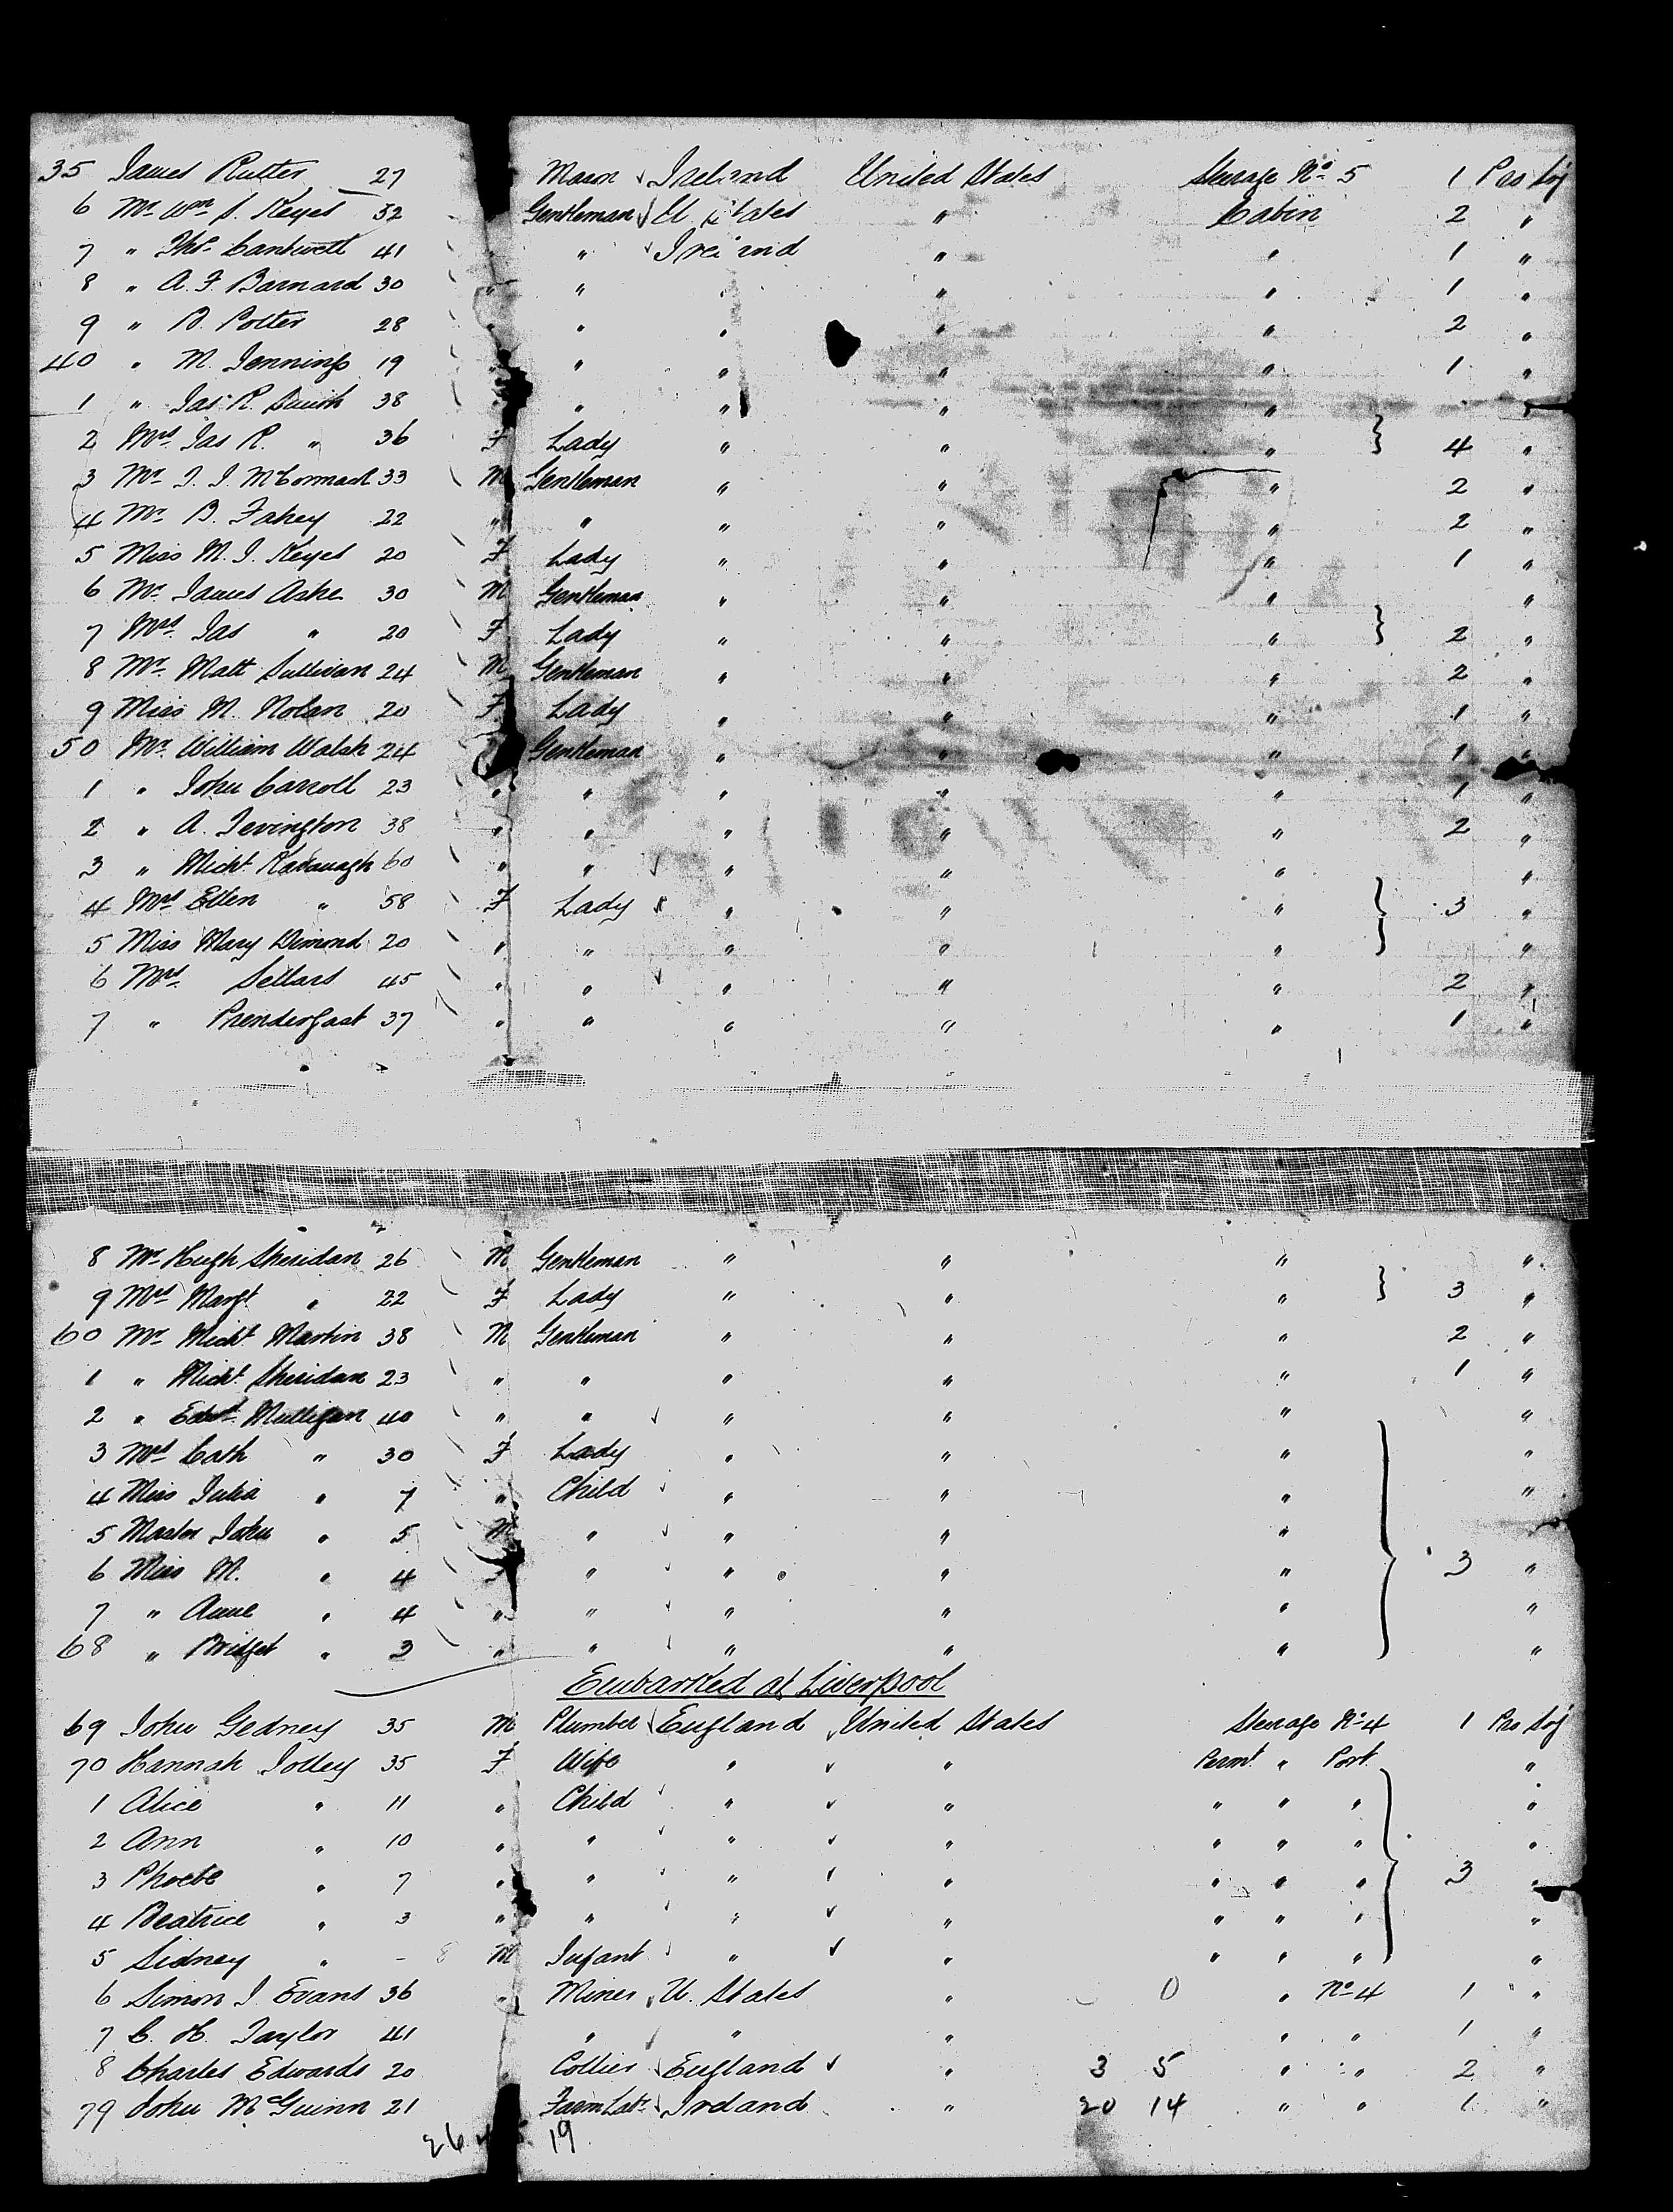 35 James Rutter 27 Mason Ireland United States Steerage No 5 1 Pro Soj
6 Mr Wm S. Keyes 32 Gentleman U. States " Cabin 2 "
7 " Thos Cantwell 41 " " Ireland " " 1 "
8 " A. F. Barnard 30 " " " " " 1 "
9 " B. Potter 28 " " " " " 2 "
40 " M. Jennings 19 " " " " 1 "
1 " Jas R. 38 " " " " "
2 Mrs Jas R. " 36 F Lady " " " 4 "
3 Mr J. J. McCormack 33 M Gentleman " " " 2 "
4 Mr B. Fahey 22 " " " " " 2 "
5 Miss M. J. Keyes 20 F Lady " " " 1 "
6 Mr James Ashe 30 M Gentleman " " " "
7 Mrs Jas " 20 F Lady " " " 2 "
8 Mr Matt Sullivan 24 M Gentleman " " " 2 "
9 Miss M. Nolan 20 F Lady " " " 1 "
50 Mr William Walsh 24 Gentleman " " " 1 "
1 " John Carroll 23 " " " " " 1 "
2 " A. Tevington 38 " " " " " 2 "
3 " Michl Kavanagh 60 " " " " " "
4 Mrs Ellen " 58 F Lady " " " 3 "
5 Miss Mary Dimond 20 " " " " " "
6 Mrs Sellars 45 " " " " " 2 "
7 " Prendergast 37 " " " " " 1 "
8 Mr Hugh Sheridan 26 M Gentleman " " " "
9 Mrs Margt " 22 F Lady " " " 3 "
60 Mr Michl Martin 38 M Gentleman " " " 2 "
1 " Michl Sheridan 23 " " " " " 1 "
2 " Edwd Mulligan 40 " " " " " "
3 Mrs Cath " 30 F Lady " " " "
4 Miss Julia " 7 " Child " " " "
5 Master John " 5 M " " " " "
6 Miss M. " 4 F " " " " 3 "
7 " Anne " 4 " " " " " "
68 " Bridget " 2 " " " " " "
Embarked at Liverpool
69 John Gedney 35 M Plumber England United States Steerage No 4 1 Pro Soj
70 Hannah Jolley 35 F Wife " " Permt " Port "
1 Alice " 11 " Child " " " " " "
2 Ann " 10 " " " " " " " "
3 Phoebe " 7 " " " " " " " 3 "
4 Beatrice " 3 " " " " " " " "
5 Sidney " - 8 M Infant " " " " " "
6 Simon J. Evans 36 " Miner U. States " 0 " No 4 1 "
7 C. H. Taylor 41 " " " " " 1 "
8 Charles Edwards 20 " Collier England " 3 5 " " 2 "
79 John McGuinn 21 Farm Labr Ireland " 20 14 " " 1 "
26 19